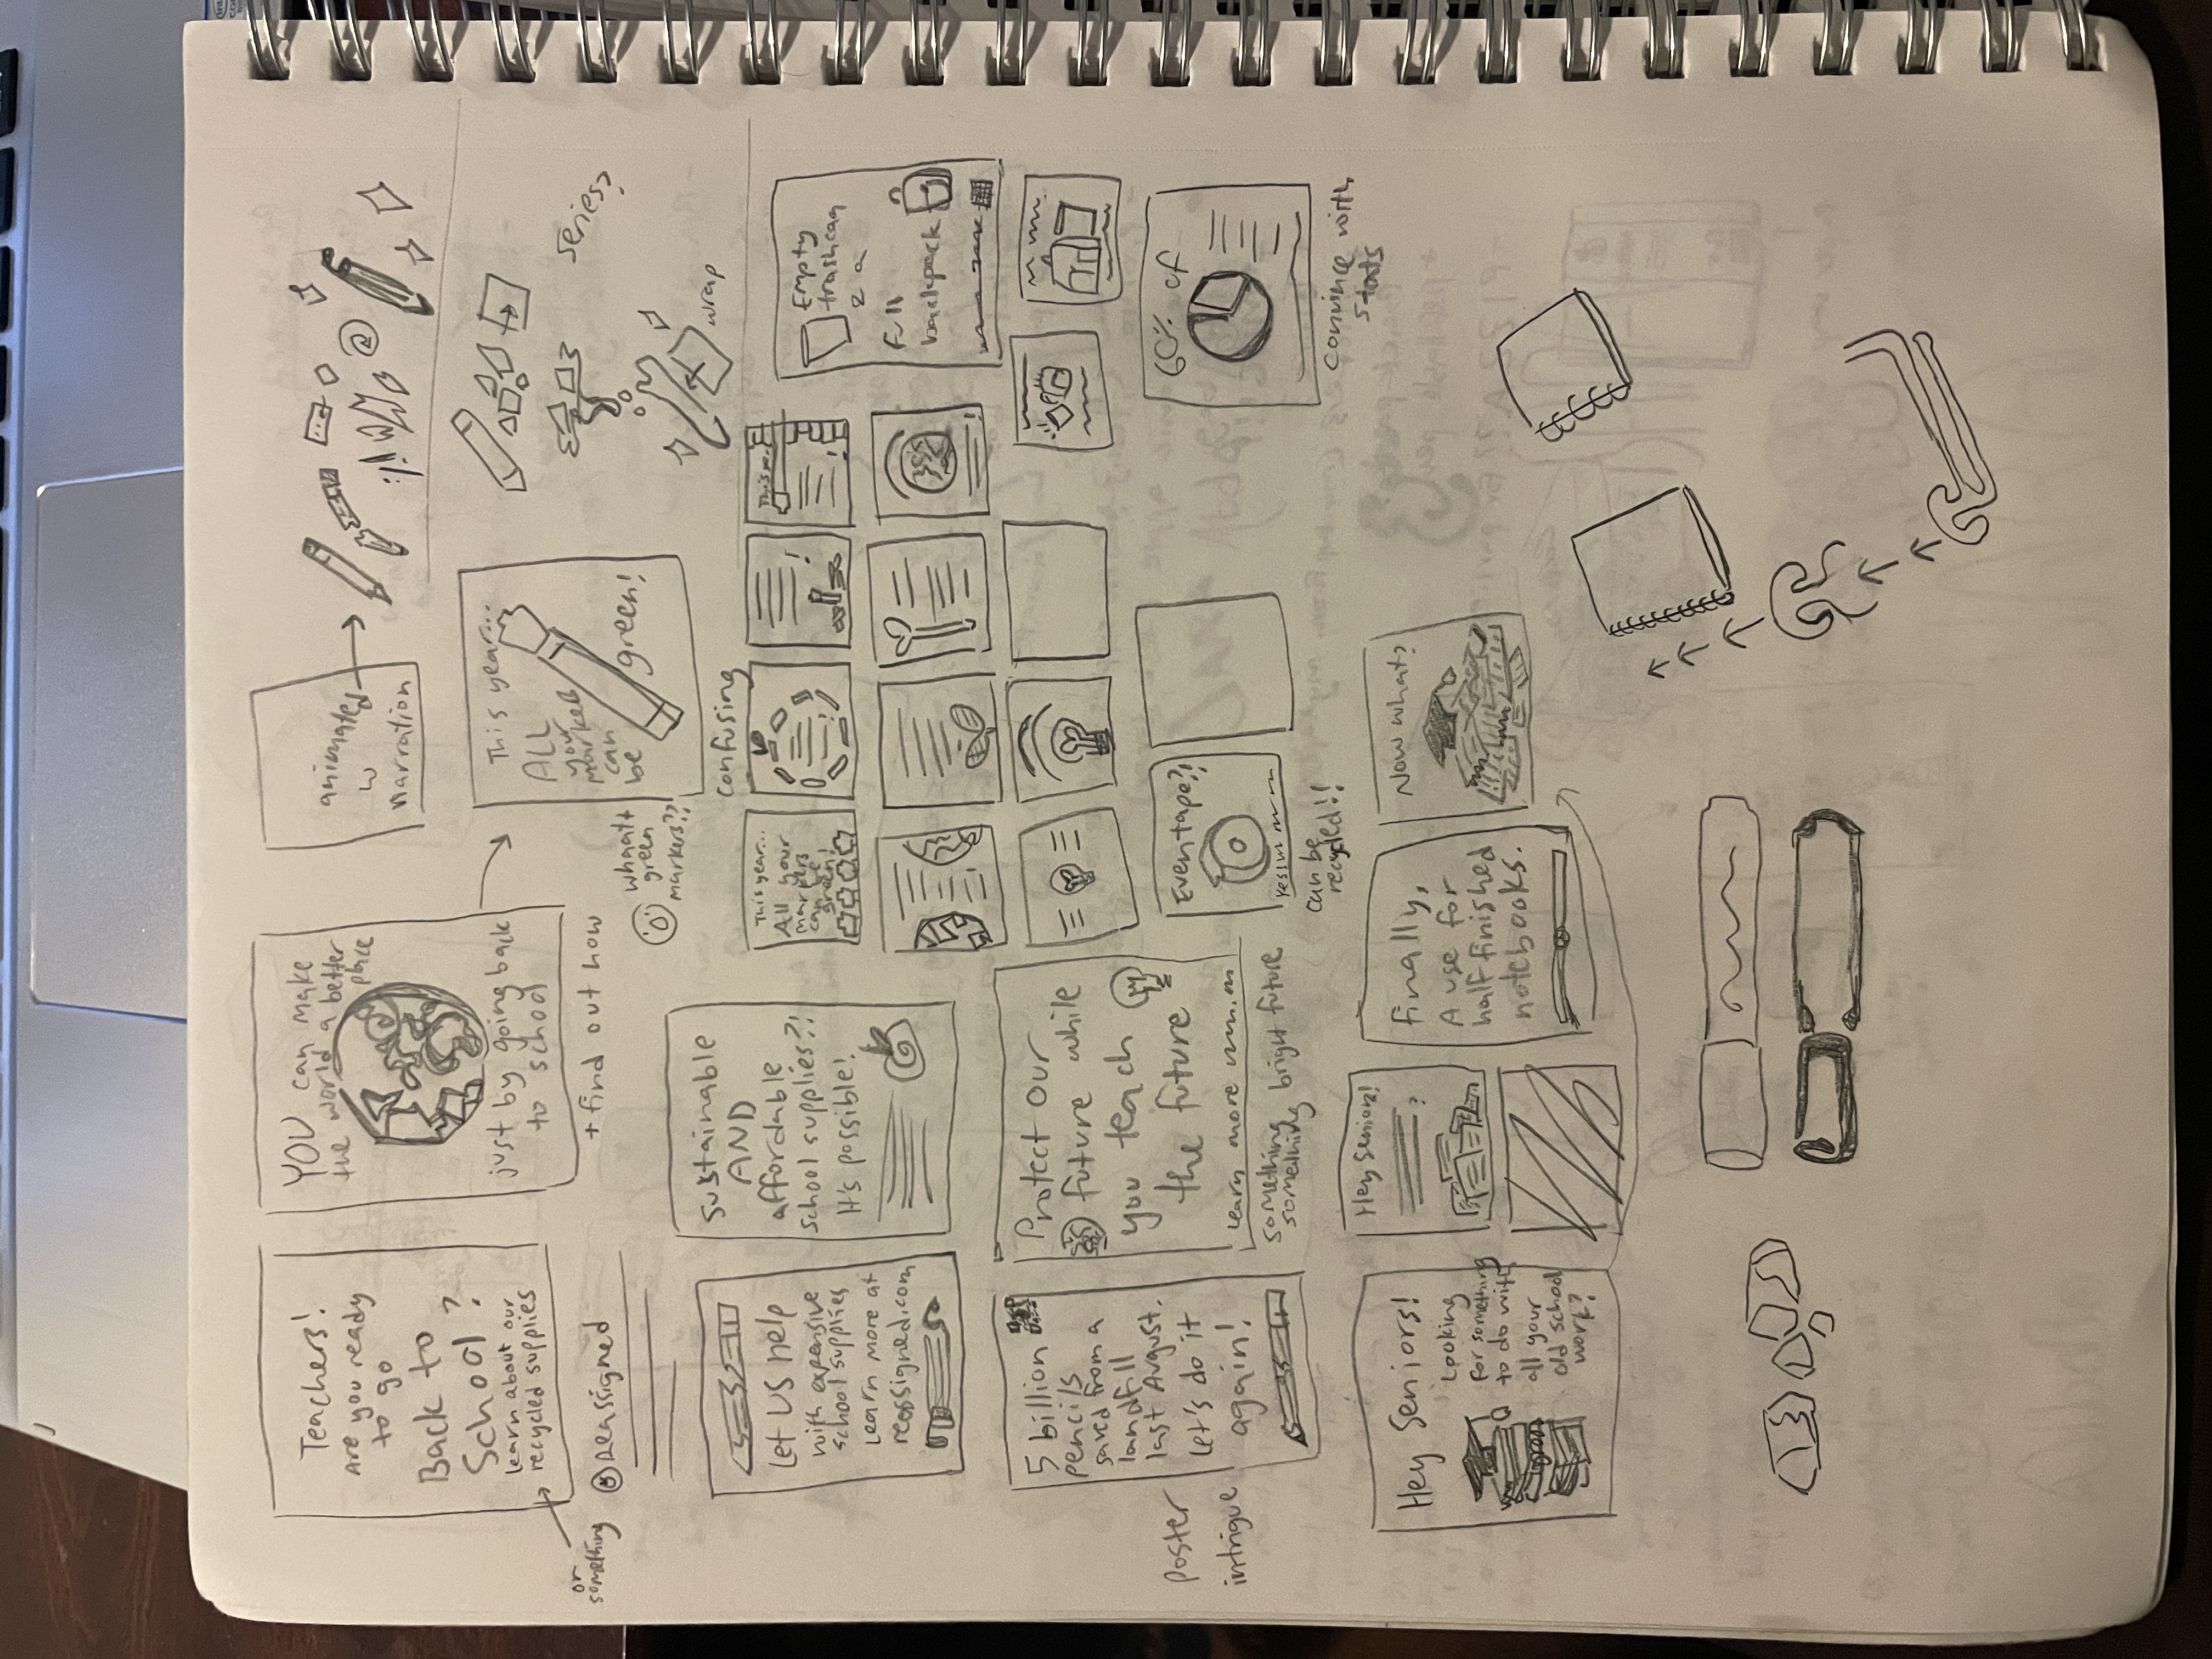 Teachers!
Are you ready
to go
Back to
School?
learn about our
recycled supplies
or
something
Reassigned
YOU can make
the world a better
place
just by going back
to school
+ find out how
animated
w
narration
This year...
ALL
your
markers
can
be
green!
whaatt
green
markers??
confusing
series?
wrap
Let US help
with expensive
school supplies
Learn more at
reassigned.com
Sustainable
AND
affordable
school supplies?!
It's possible!
This year...
All your
markers
can be
green!
Empty
trashcan
2 a
full
backpack
5 billion
pencils
saved from a
landfill
last August.
Let's do it
again!
Poster
intrigue
Protect our
future while
you teach
the future
learn more
something
something bright future
Even tape?!
Yes!
can be
recycled!!
60% of
Convince with
stats
Hey Seniors!
Looking
for something
to do with
all your
old school
work?
Hey Seniors!
?
Finally,
A use for
half finished
notebooks.
Now what?